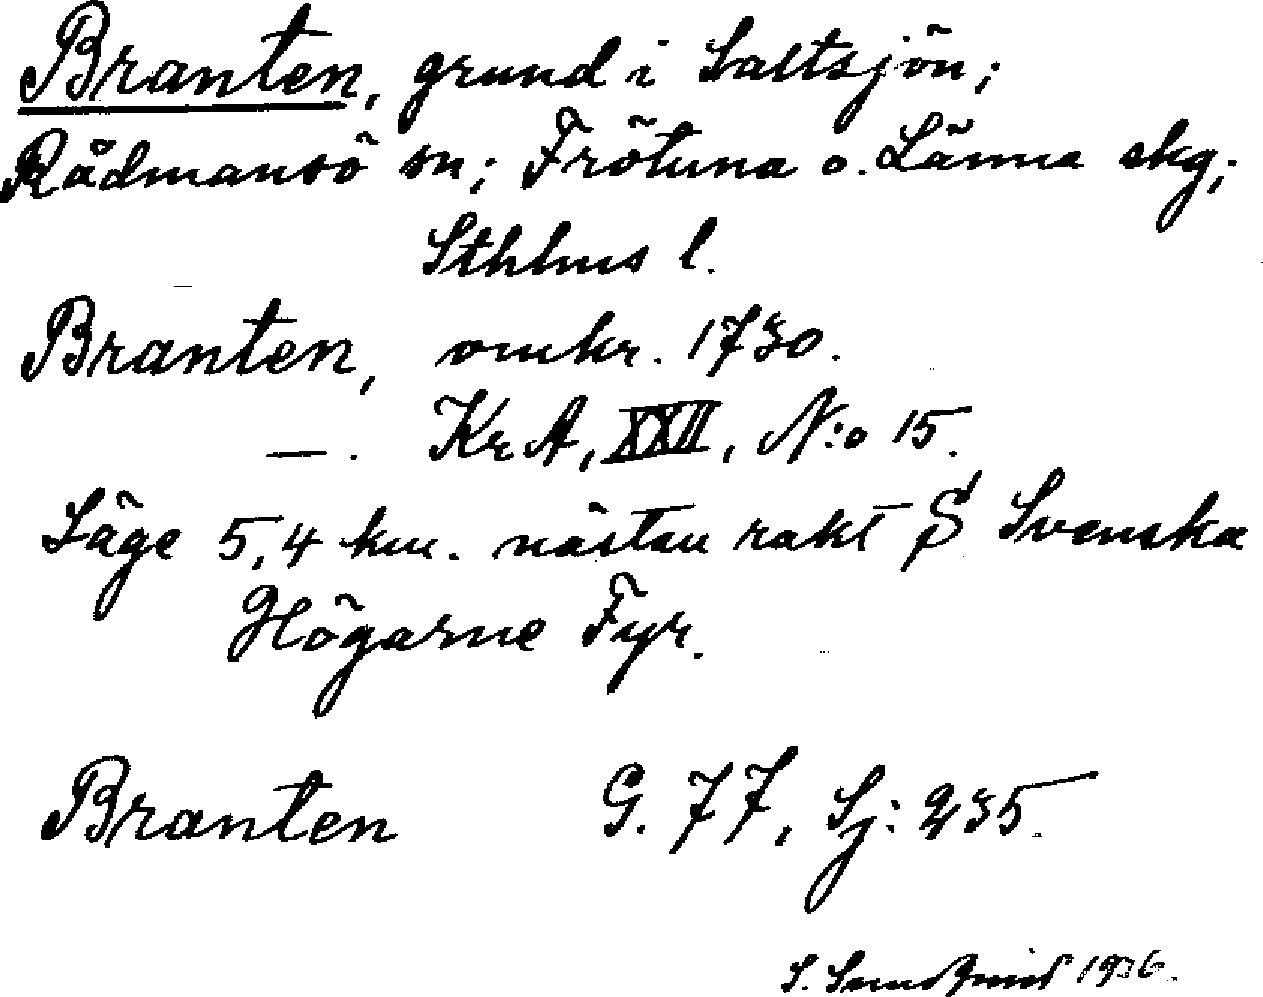 Branten, grund i Saltsjön;
Rådmansö sn; Frötuna o. Länna skg;
Sthlms l.
Branten, omkr. 1730.
—. Kr A, XXII, N:o 15.
Läge 5,4 km. nästan rakt S Svenska
Högarne Fyr.
Branten G. 77, Sj: 235.
S. Sundqvist 1926.